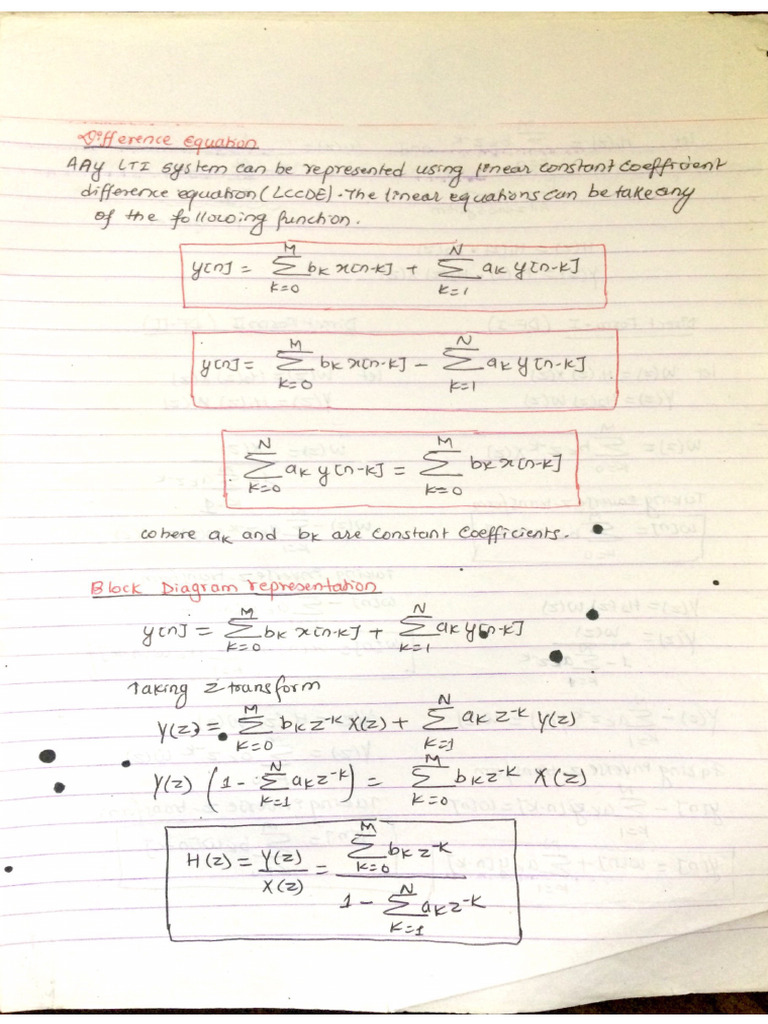 Difference Equation
Any LTI system can be represented using linear constant coefficient
difference equation (LCCDE). The linear equations can be take any
of the following function.
y[n] = ∑_{k=0}^{M} b_k x[n-k] + ∑_{k=1}^{N} a_k y[n-k]
y[n] = ∑_{k=0}^{M} b_k x[n-k] - ∑_{k=1}^{N} a_k y[n-k]
∑_{k=0}^{N} a_k y[n-k] = ∑_{k=0}^{M} b_k x[n-k]
where a_k and b_k are constant coefficients.
Block Diagram representation
y[n] = ∑_{k=0}^{M} b_k x[n-k] + ∑_{k=1}^{N} a_k y[n-k]
Taking z transform
Y(z) = ∑_{k=0}^{M} b_k z^{-k} X(z) + ∑_{k=1}^{N} a_k z^{-k} Y(z)
Y(z) (1 - ∑_{k=1}^{N} a_k z^{-k}) = ∑_{k=0}^{M} b_k z^{-k} X(z)
H(z) = Y(z)/X(z) = (∑_{k=0}^{M} b_k z^{-k})/(1 - ∑_{k=1}^{N} a_k z^{-k})